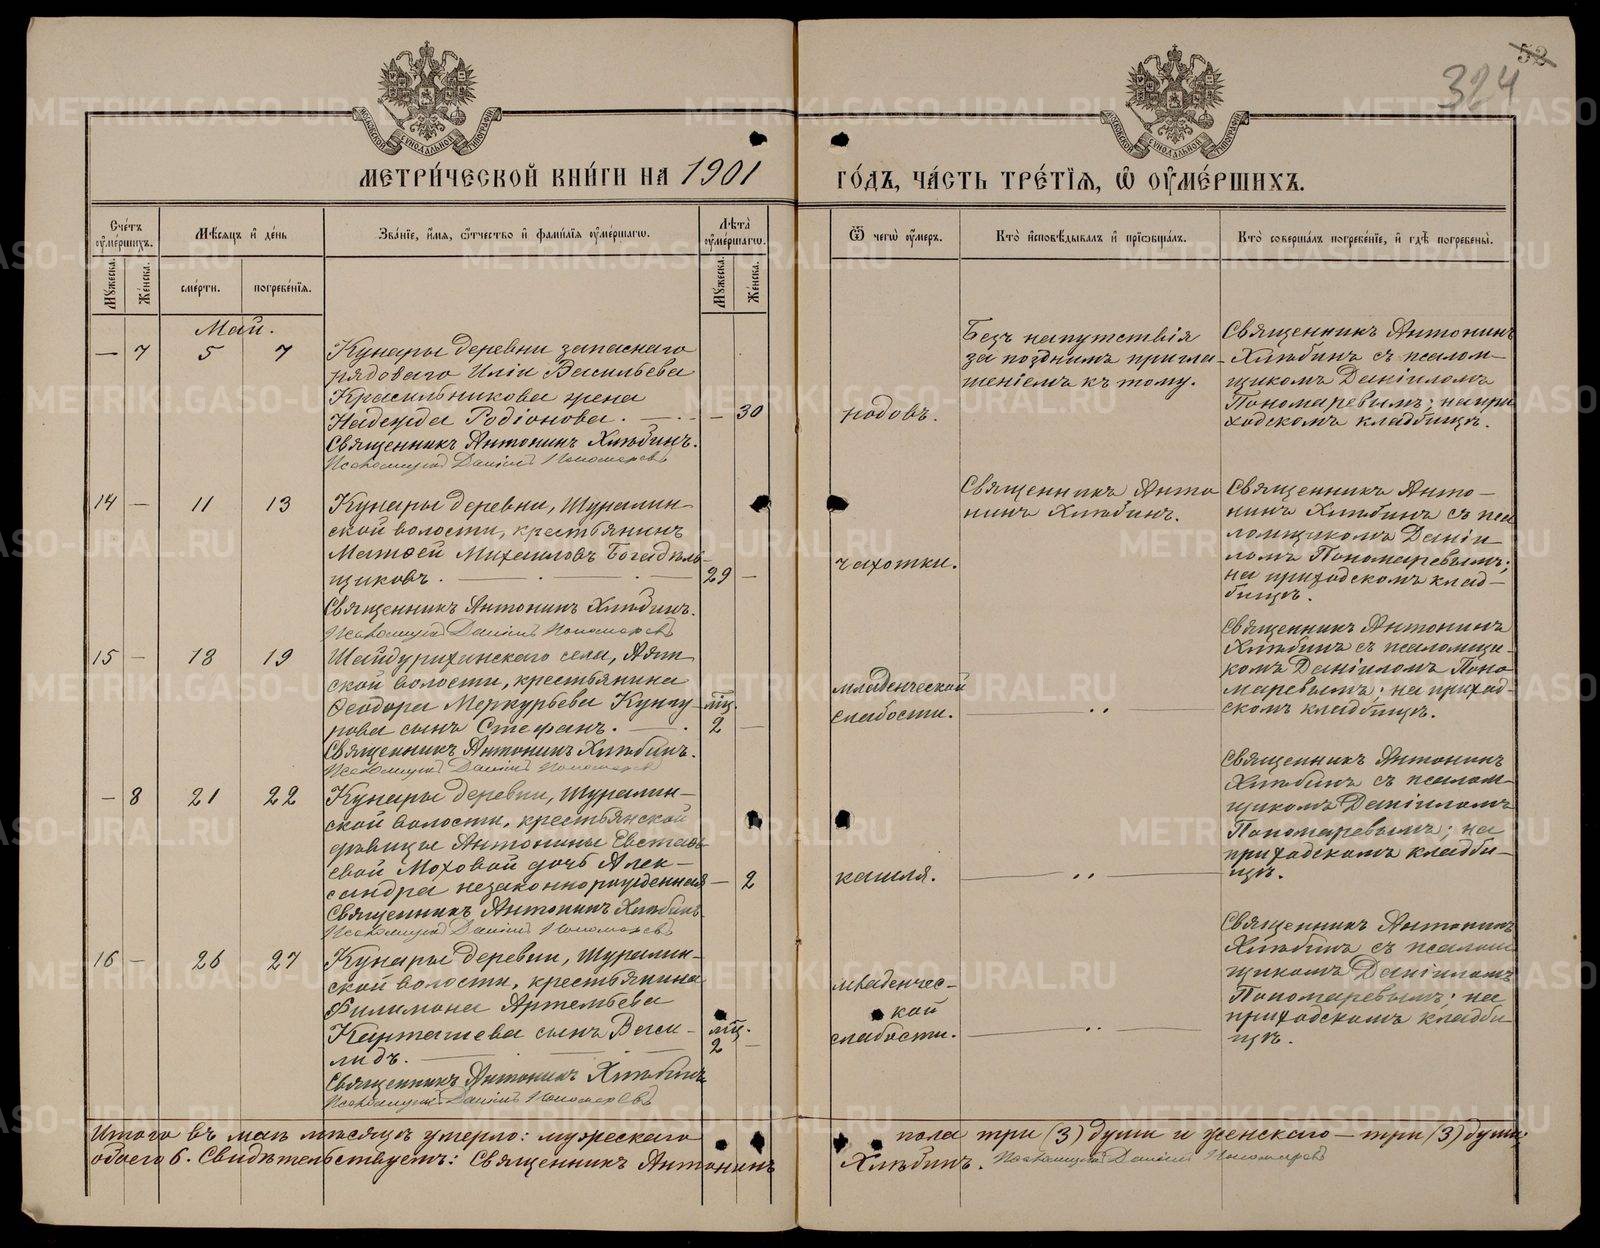 52
324
МЕТРИ́ЧЕСКОЙ КНИ́ГИ НА 1901
ГО́ДЪ, ЧА́СТЬ ТРЕ́ТЇѦ, Ѿ ОУ҆МЕ́РШИХЪ.
Сче́тъ оу҆ме́ршихъ.
Мꙋ́жеска.
Же́нска.
Мѣ́сѧцъ и҆ де́нь
сме́рти.
погребе́нїѧ.
Зва́нїе, и҆́мѧ, ѻ҆́тчество и҆ фами́лїѧ оу҆ме́ршагѡ.
Лѣ́та оу҆ме́ршагѡ.
Мꙋ́жеска.
Же́нска.
Ѿ чегѡ̀ оу҆́меръ.
Кто̀ и҆сповѣ́дывалъ и҆ прїѡбща́лъ.
Кто̀ соверша́лъ погребе́нїе, и҆ гдѣ̀ погребены̀.
Май.
— 7 5 7
Кунары деревни запаснаго
рядоваго Иліи Васильева
Красильникова жена
Надежда Родіонова. — 30
Священникъ Антонинъ Хлѣбинъ.
Псаломщикъ Даніилъ Пономаревъ
родовъ.
Безъ напутствія
за позднимъ пригла-
шеніемъ къ тому.
Священникъ Антонинъ
Хлѣбинъ съ псалом-
щикомъ Даніиломъ
Пономаревымъ; на при
ходскомъ кладбищѣ.
14 — 11 13
Кунары деревни, Шуралин-
ской волости, крестьянинъ
Матѳей Михаиловъ Богадѣль-
щиковъ. 29 —
Священникъ Антонинъ Хлѣбинъ.
Псаломщикъ Даніилъ Пономаревъ
чахотки.
Священникъ Анто
нинъ Хлѣбинъ.
Священникъ Анто-
нинъ Хлѣбинъ съ пса
ломщикомъ Даніи-
ломъ Пономаревымъ;
на приходскомъ клад-
бищѣ.
15 — 18 19
Шайдурихинскаго села, Аят
ской волости, крестьянина
Ѳеодора Меркурьева Кунгу-
рова сынъ Стефанъ. мц. 2 —
Священникъ Антонинъ Хлѣбинъ.
Псаломщикъ Даніилъ Пономаревъ
младенческой
слабости.
— „ —
Священникъ Антонинъ
Хлѣбинъ съ псаломщи-
комъ Даніиломъ Поно
маревымъ; на приход-
скомъ кладбищѣ.
— 8 21 22
Кунары деревни, Шуралин-
ской волости, крестьянской
дѣвицы Антонины Евстаѳі
евой Моховой дочь Алек-
сандра незаконнорожденная — 2
Священникъ Антонинъ Хлѣбинъ
Псаломщикъ Даніилъ Пономаревъ
кашля.
— „ —
Священникъ Антонинъ
Хлѣбинъ съ псалом-
щикомъ Даніиломъ
Пономаревымъ; на
приходскомъ кладби-
щѣ.
16 — 26 27
Кунары деревни, Шуралин-
ской волости, крестьянина
Филимона Артемьева
Карташева сынъ Васи- мц.
лидъ. 2 —
Священникъ Антонинъ Хлѣбинъ
Псаломщикъ Даніилъ Пономаревъ
младенчес-
кой
слабости.
— „ —
Священникъ Антонинъ
Хлѣбинъ съ псалом
щикомъ Даніиломъ
Пономаревымъ; на
приходскомъ кладби
щѣ.
Итого въ маѣ мѣсяцѣ умерло: мужескаго пола три (3) души и женскаго — три (3) души;
обоего 6. Свидѣтельствуемъ: Священникъ Антонинъ Хлѣбинъ. Псаломщикъ Даніилъ Пономаревъ
METRIKI.GASO-URAL.RU